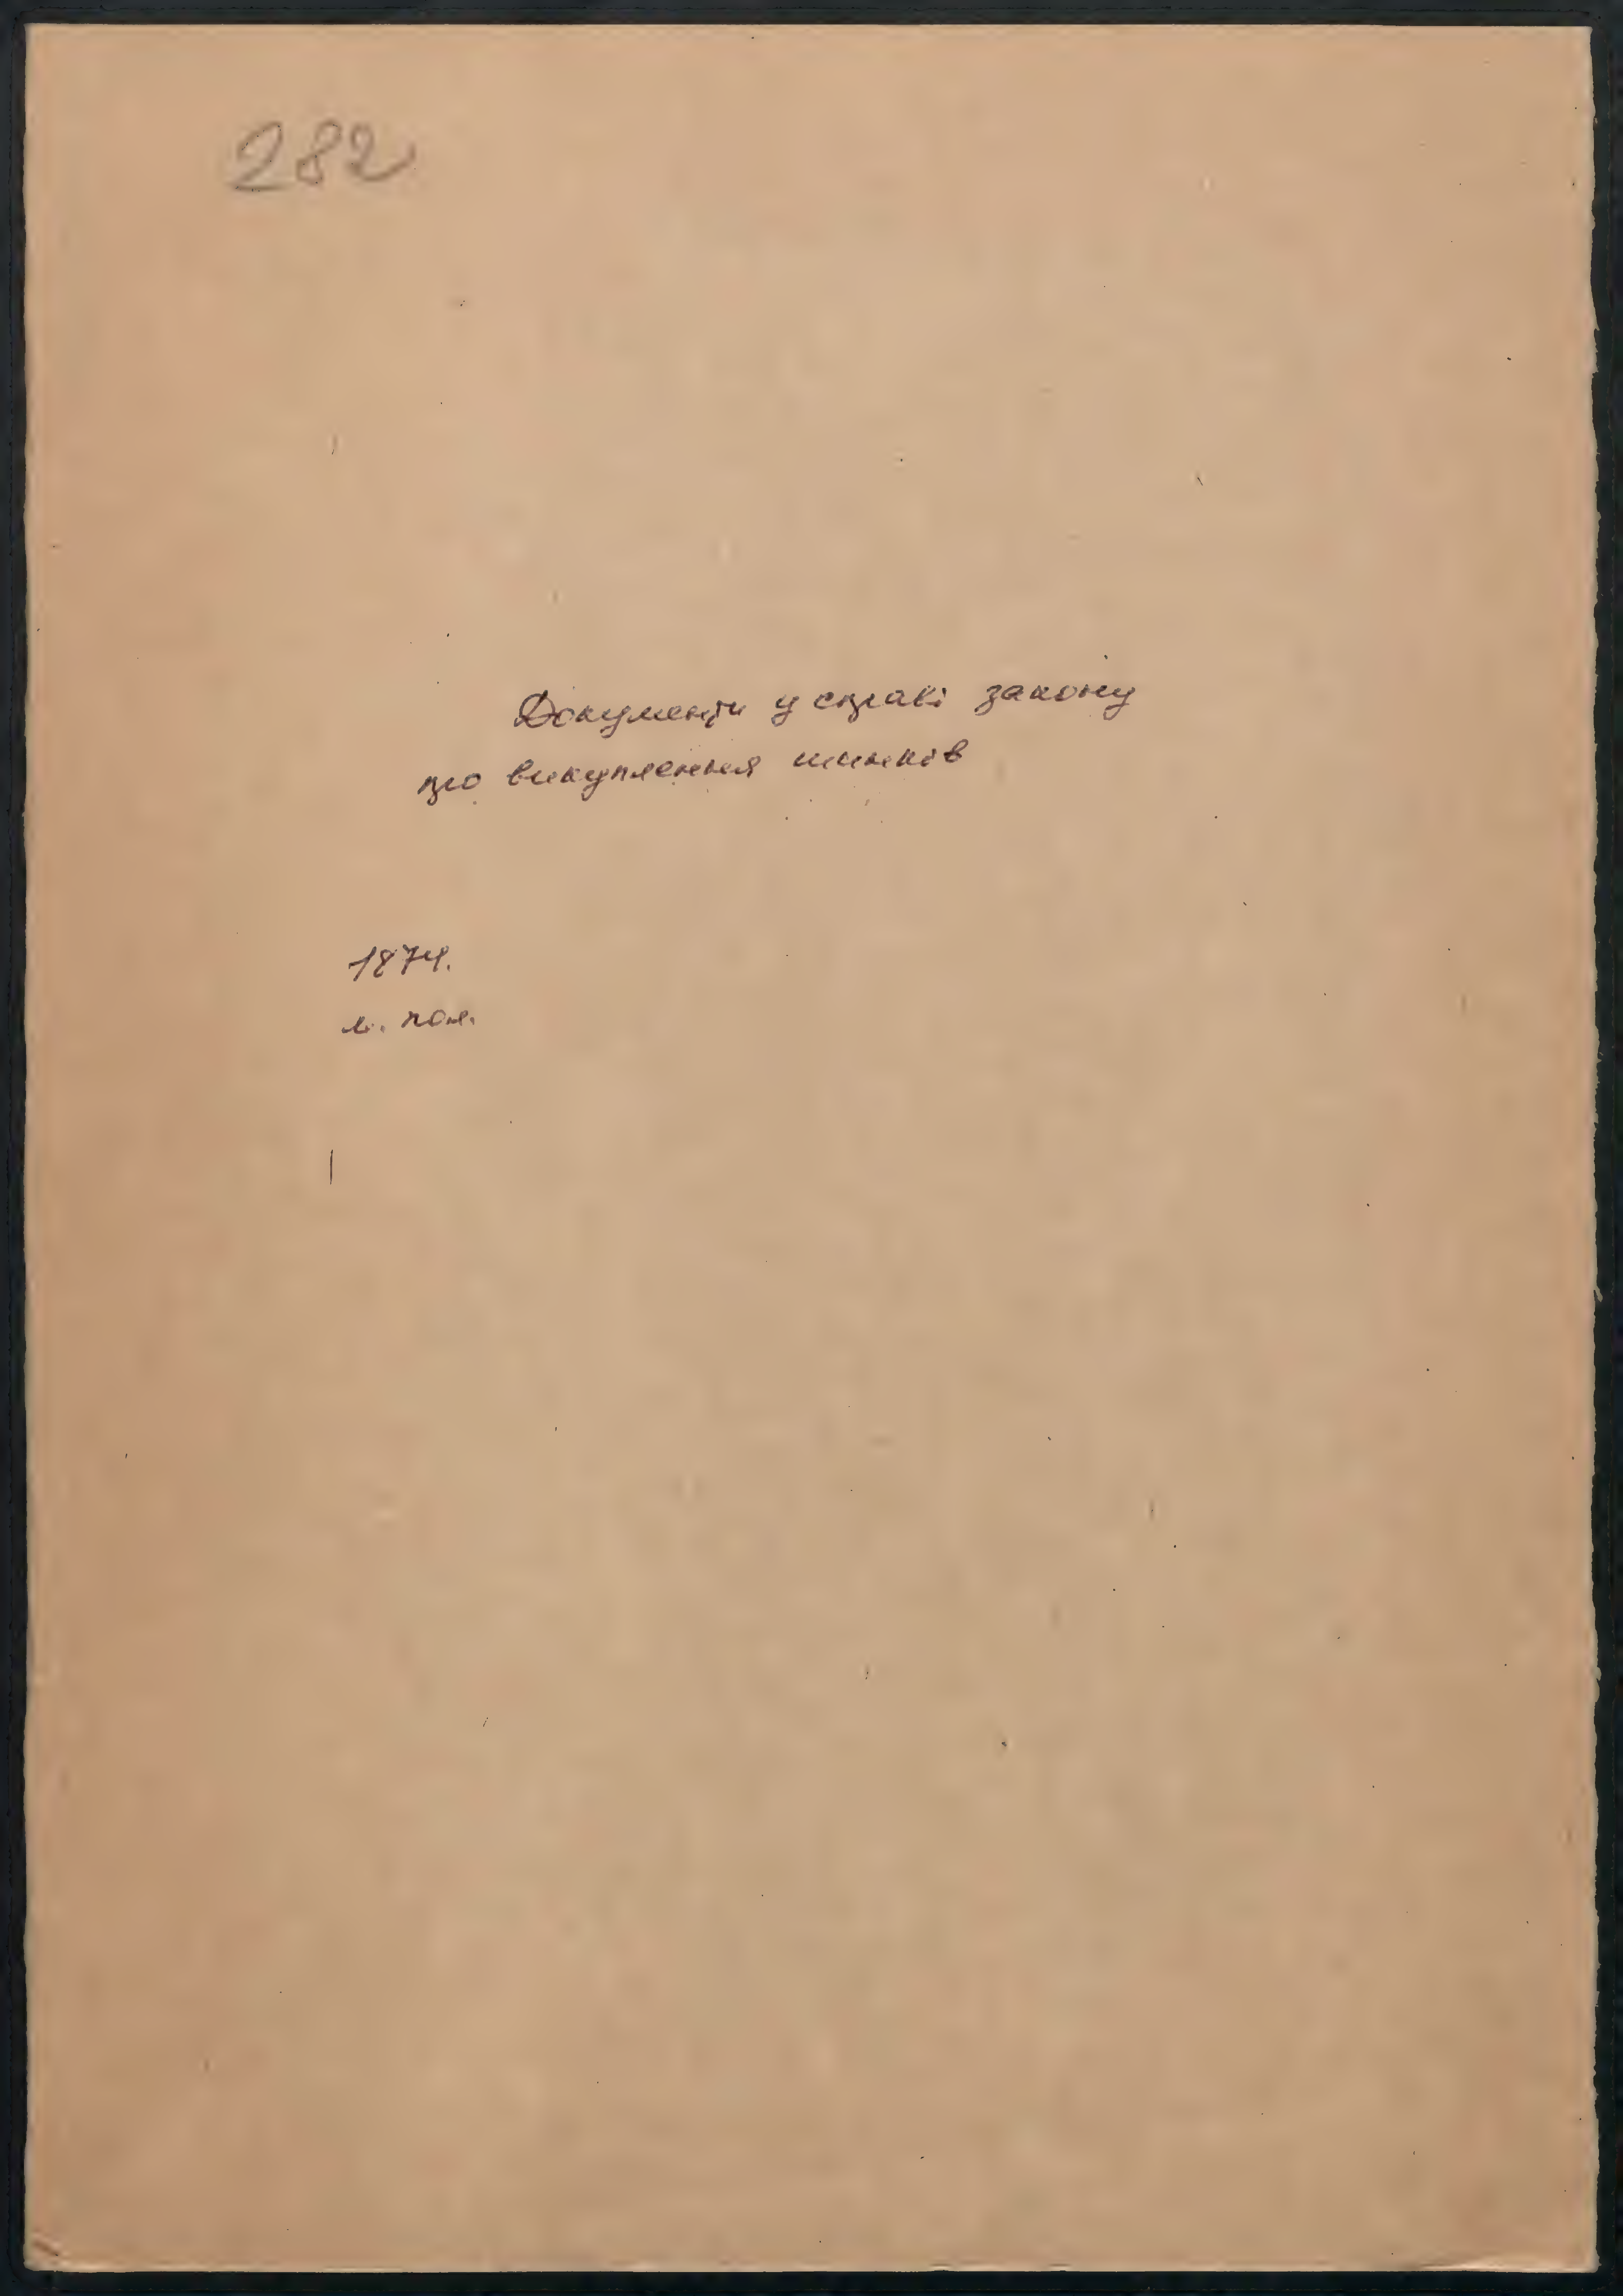 282
Документи у справі закону
про викуплення шинків
1874.
м. пол.